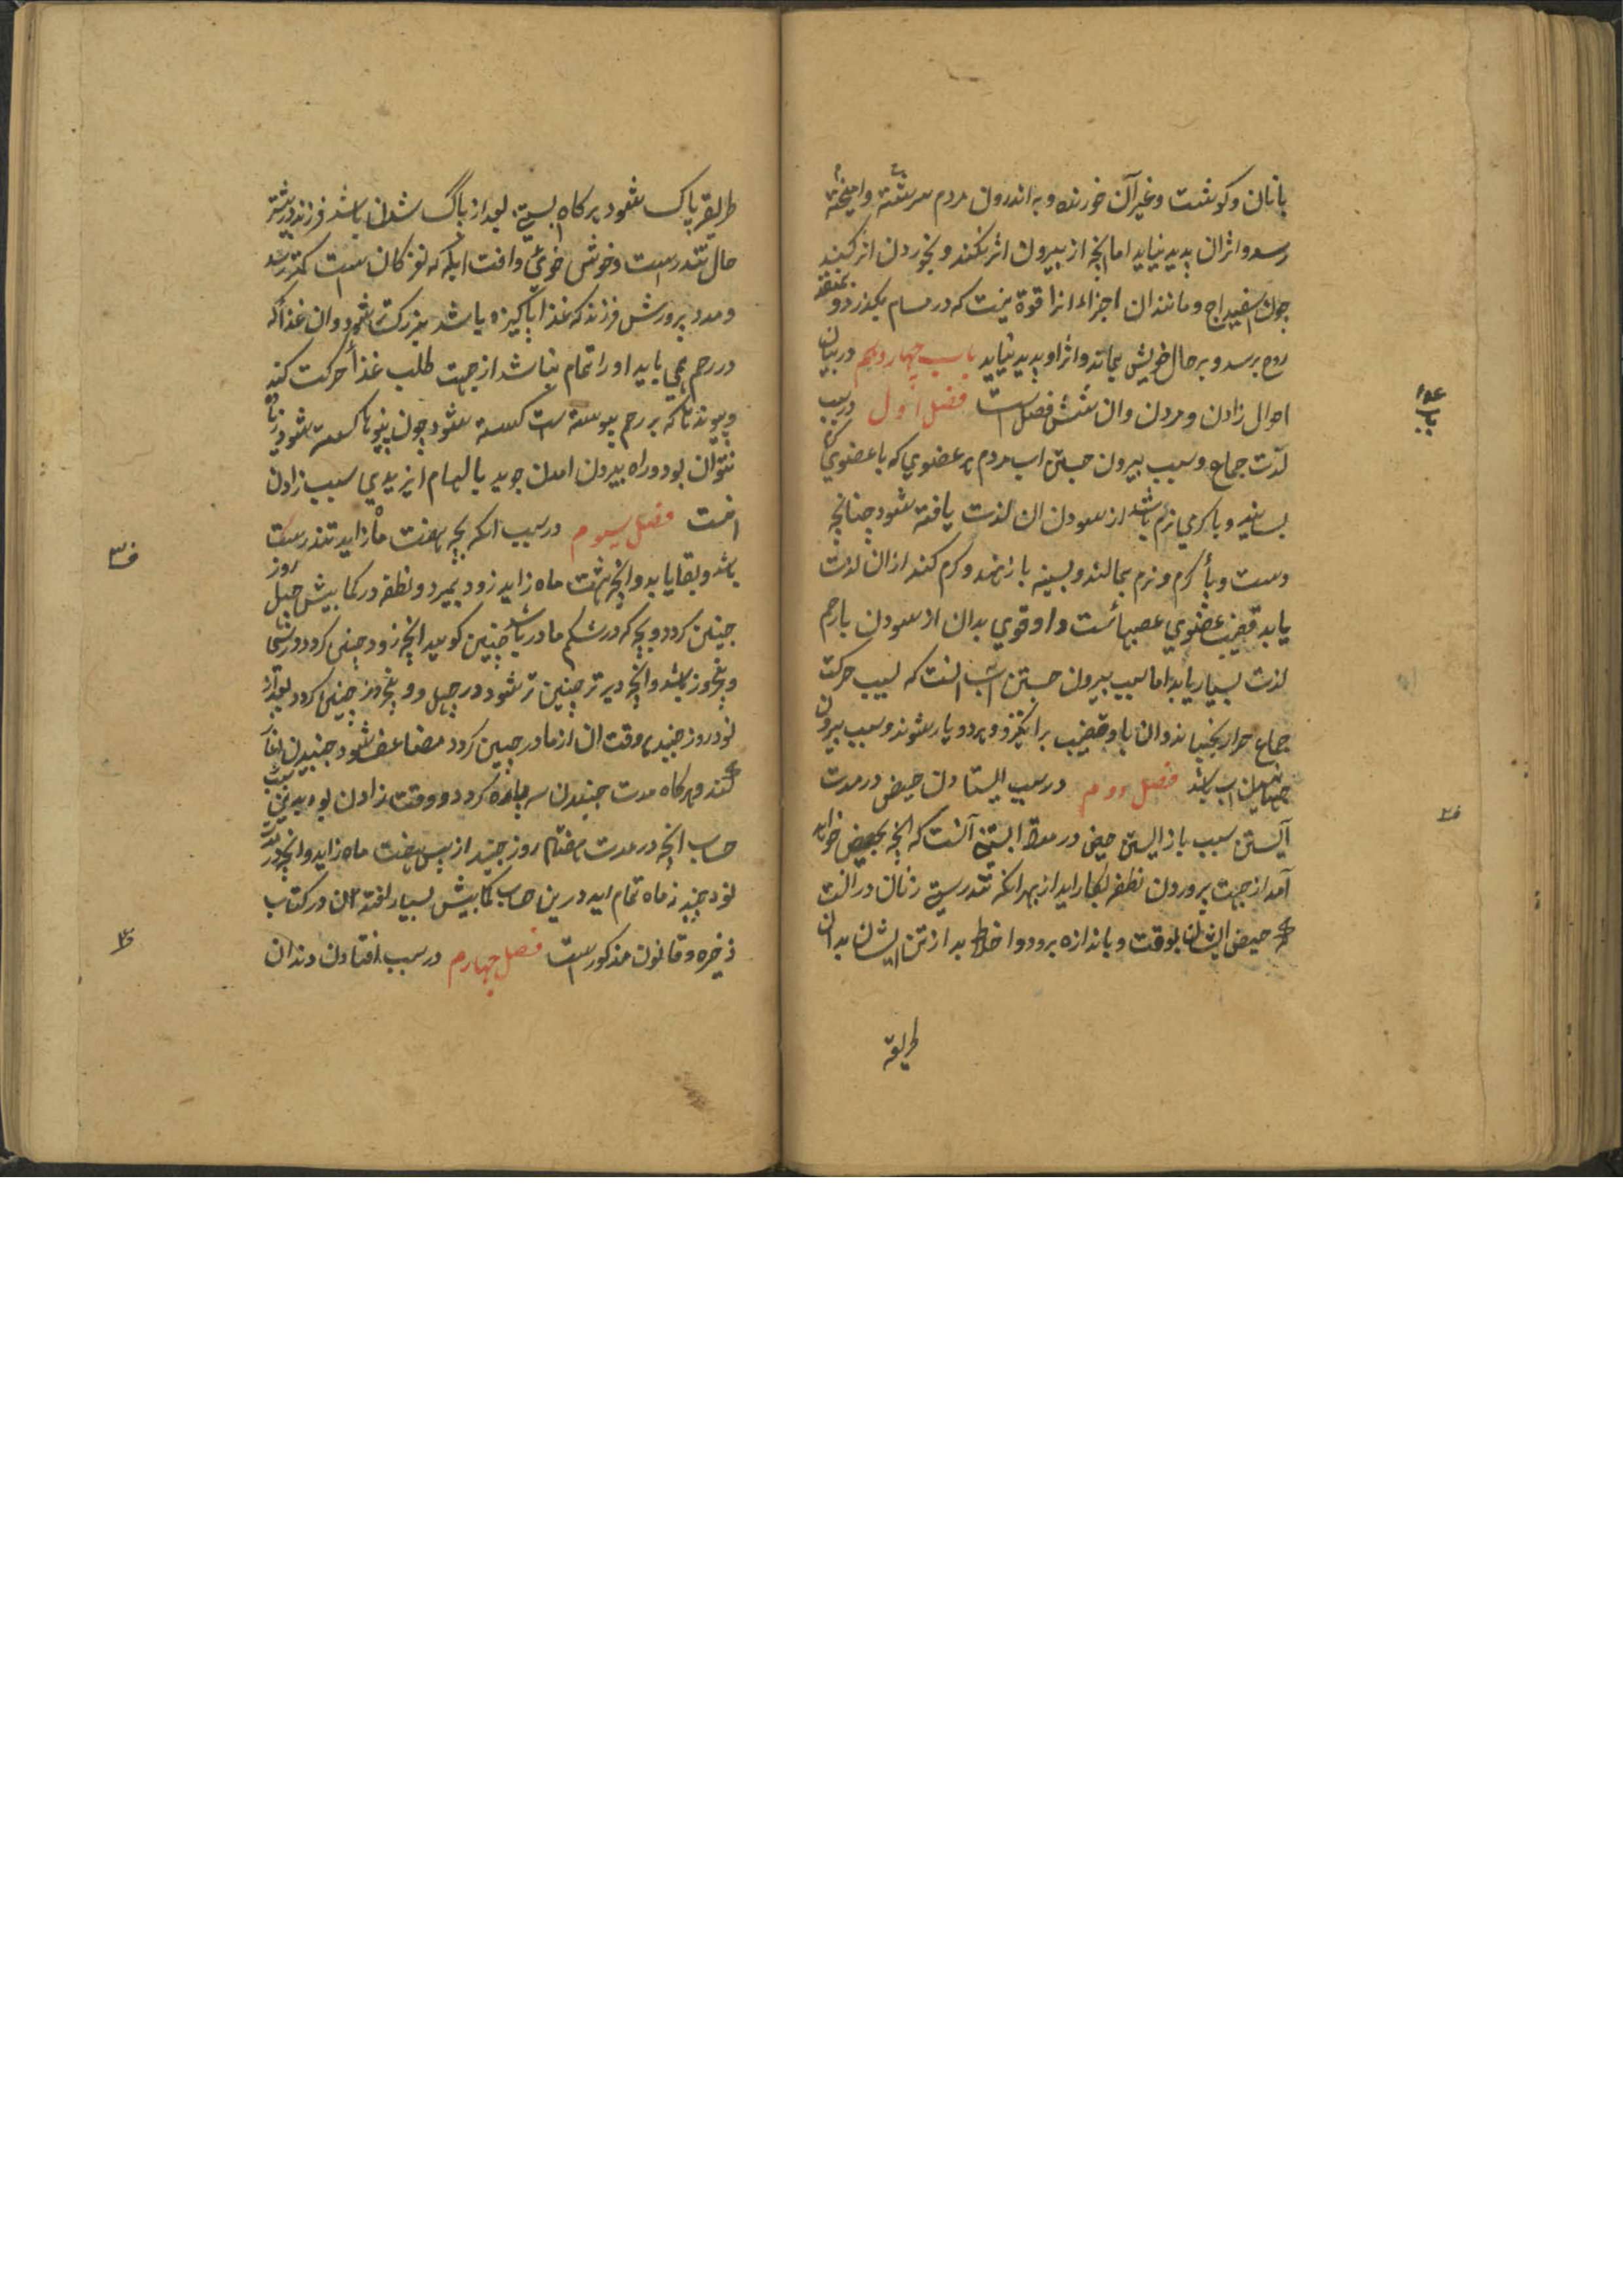 با نان و کوشت و غیر آن خورند و به اندرون مردم سرشته و امیخته
رسد و اثر ان پدید نیاید اما انچه از بیرون اثر نکند و بخوردن اثر کند
چون اسفیداج و مانند ان اجزاء انرا قوة نیست که در مسام بکذرد و بمنفذ
روح برسد و بر حال خویش بماند و اثر او پدید نیاید باب چهاردهم در بیان
احوال زادن و مردن و ان شش فصل است فصل اول در سبب
لذت جماع و سبب بیرون جستن اب مردم هر عضوی که با عضوی
بساید و با کرمی نرم باشد از سودن ان لذت یافته شود چنانچه
دست و پا کرم و نرم بمالند و بسینه باز نهند و کرم کنند ازان لذت
یابد قضیب عضوی عصبهائست و او قوی بدان از سودن با رحم
لذت بسیار یابد اما سبب بیرون جستن اب انست که بسبب حرکت
جماع حرارت بجنباند و ان باد قضیب برانکیزد و هر دو یار شوند و سبب بیرون
جهانیدن اب باشد فصل دوم در سبب ایستادن حیض در مدت
آبستنی سبب باز ایستن حیض در مدة ابستنی آنست که انچه بحیض خواهد
آمد از جهت پرورون نطفه بکار اید از بهر انکه تندرستی زنان در انست
که حیض ایشان بوقت و باندازه برود و اخلاط بد از تن ایشان بدان
طریقه
طریقه پاک شود هر کاه بستی بعد از پاک شدن باشد فرزند بیشتر
حال تندرست و خوش خوی و افت ابله که نوز کان ست کمتر رسد
و مدد پرورش فرزند که غذا پاکیزه یا شد بزرک تر شود و ان غذا که
در رحم می یابد او را تمام نباشد از جهت طلب غذا حرکت کند
و پیوندها که بر رحم پیوسته است کسسته شود چون پیوندها کسسته شود
نتوان بود و راه بیرون امدن جوید با الهام ایزیدی سبب زادن
انست فصل سیوم در سبب انکه بچه بهفت ماه زاید تندرست
باشد و بقا یابد و انچه بهشت ماه زاید زود بمیرد و نطفه در کمابیش چهل روز
جنین کردد و بچه که در شکم مادر باشد جنین کویند انچه زود جنین کردد در سی
و پنج روز باشد و انچه دیرتر جنین تر شود در چهل و پنج روز جنین کردد بعد از
نود روز جنبد وقت ان از مادر جنین کردد مضاعف شود جنبیدن اغاز
کند و هر کاه مدت جنبیدن سه باره کردد و وقت زادن بود بدین
حساب انچه در مدت هفتاد روز جنبد از پس هفت ماه زاید و انچه در مدت
نود جنبد نه ماه تمام اید درین حساب کمابیش بسیار افتد ان در کتاب
ذخیره و قانون مذکور ست فصل چهارم در سبب افتادن دندان